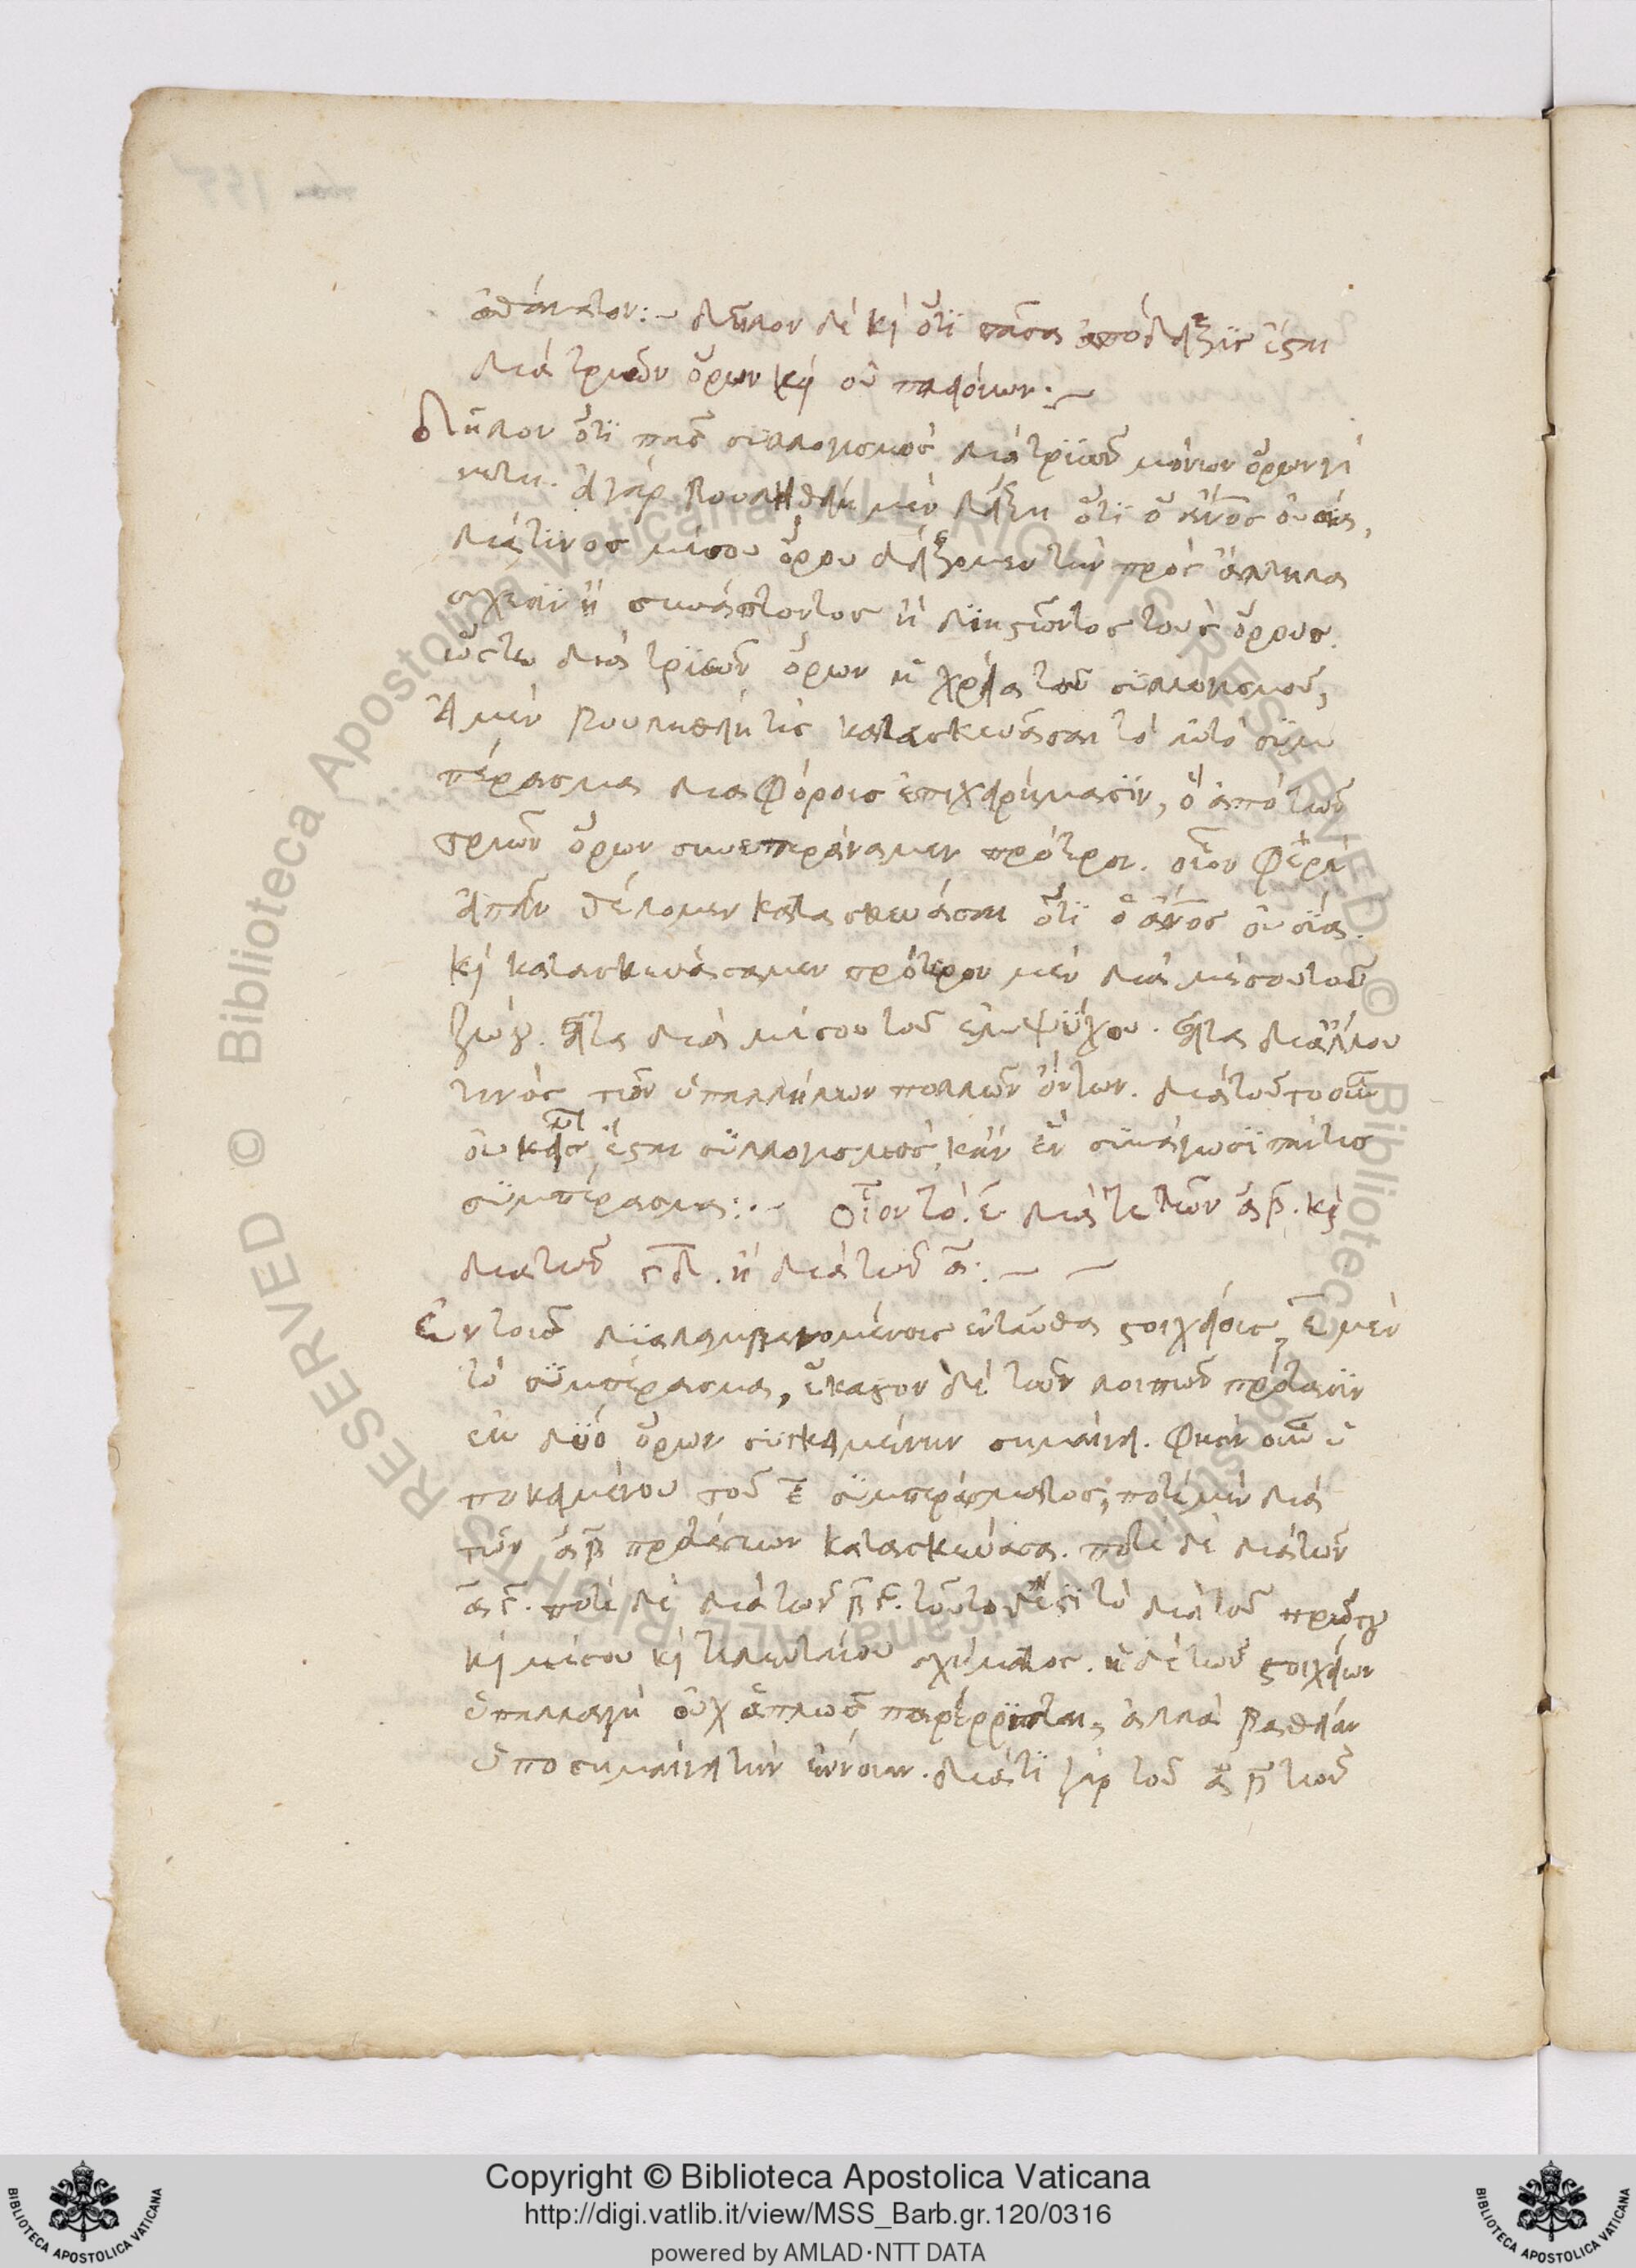 ἀθάνατον:~ δῆλον δὲ κὶ ὅτϊ πᾶσα ἀπόδειξϊς ἔσται
διὰ τριῶν ὅρων κὶ οὐ πλειόνων:~
Δῆλον ὅτϊ πᾶς συλλογισμὸς διὰ τρϊῶν μόνων ὅρων γί
νεται. εἰ γὰρ βουληθείημεν δεῖξαι ὅτϊ ὁ ἄνος οὐσία,
διά τϊνος μέσου ὅρου δείξομεν τὴν πρὸς ἄλληλα
σχέσϊν ἢ συνάπτοντος ἢ διϊστῶντος τοὺς ὅρους.
ὥστε διὰ τρϊῶν ὅρων ἡ χρεία τοῦ συλλογισμοῦ,
εἰ μὲν βουληθείη τὶς κατασκευάσαι τὸ αὐτὸ συμ
πέρασμα διαφόροις ἐπιχειρήμασϊν, ὃ ἀπὸ τῶν
τριῶν ὅρων συνεπεράναμεν πρότερον. οἷον φέρε
εἰπεῖν θέλομεν κατασκευάσαι ὅτϊ ὁ ἄνος οὐσία.
κὶ κατασκευάσαμεν πρότερον μὲν διὰ μέσου τοῦ
ζώου. εἶτα διὰ μέσου τοῦ ἐμψύχου. εἶτα δι' ἄλλου
τινὸς τῶν ὑπαλλήλων πολλῶν ὄντων. διὰ τοῦτο οὖν
οὐκ εἷς ἔσται συλλογισμὸς, κἂν ἓν συνάγωσϊ πάντες
συμπέρασμα:.~ Οἷον τὸ. ε̄ διά τε τῶν ᾱβ̄. κὶ
διὰ τῶν γ̄δ̄. ἢ διὰ τῶν ᾱ:~ ~
Ἐν τοῖς δϊαλαμβανομένοις ἐνταῦθα στοιχείοις, ε̄ μὲν
τὸ συμπέρασμα, ἕκαστον δὲ τῶν λοιπῶν πρότασϊν
ἐκ δύο ὅρων συγκειμένην σημαίνει. φησὶν οὖν ὑ
ποκειμένου τοῦ ε̄ συμπεράσματος, ποτὲ μὲν διὰ
τῶν ᾱβ̄ προτάσεων κατασκευάσαι. ποτὲ δὲ διὰ τῶν
ᾱγ̄. ποτὲ δὲ διὰ τῶν β̄γ̄. τοῦτο δέ ἐστϊ τὸ διὰ τοῦ πρώτου
κὶ μέσου κὶ τελευταίου σχήματος. ἡ δὲ τῶν στοιχείων
ὑπαλλαγὴ οὐχ ἁπλῶς παρέρριπται, ἀλλὰ βαθεῖαν
ὑποσημαίνει τὴν ἔννοιαν. διὰ τϊ γὰρ τοῦ ᾱβ̄ τῶν
Copyright © Biblioteca Apostolica Vaticana
http://digi.vatlib.it/view/MSS_Barb.gr.120/0316
powered by AMLAD·NTT DATA